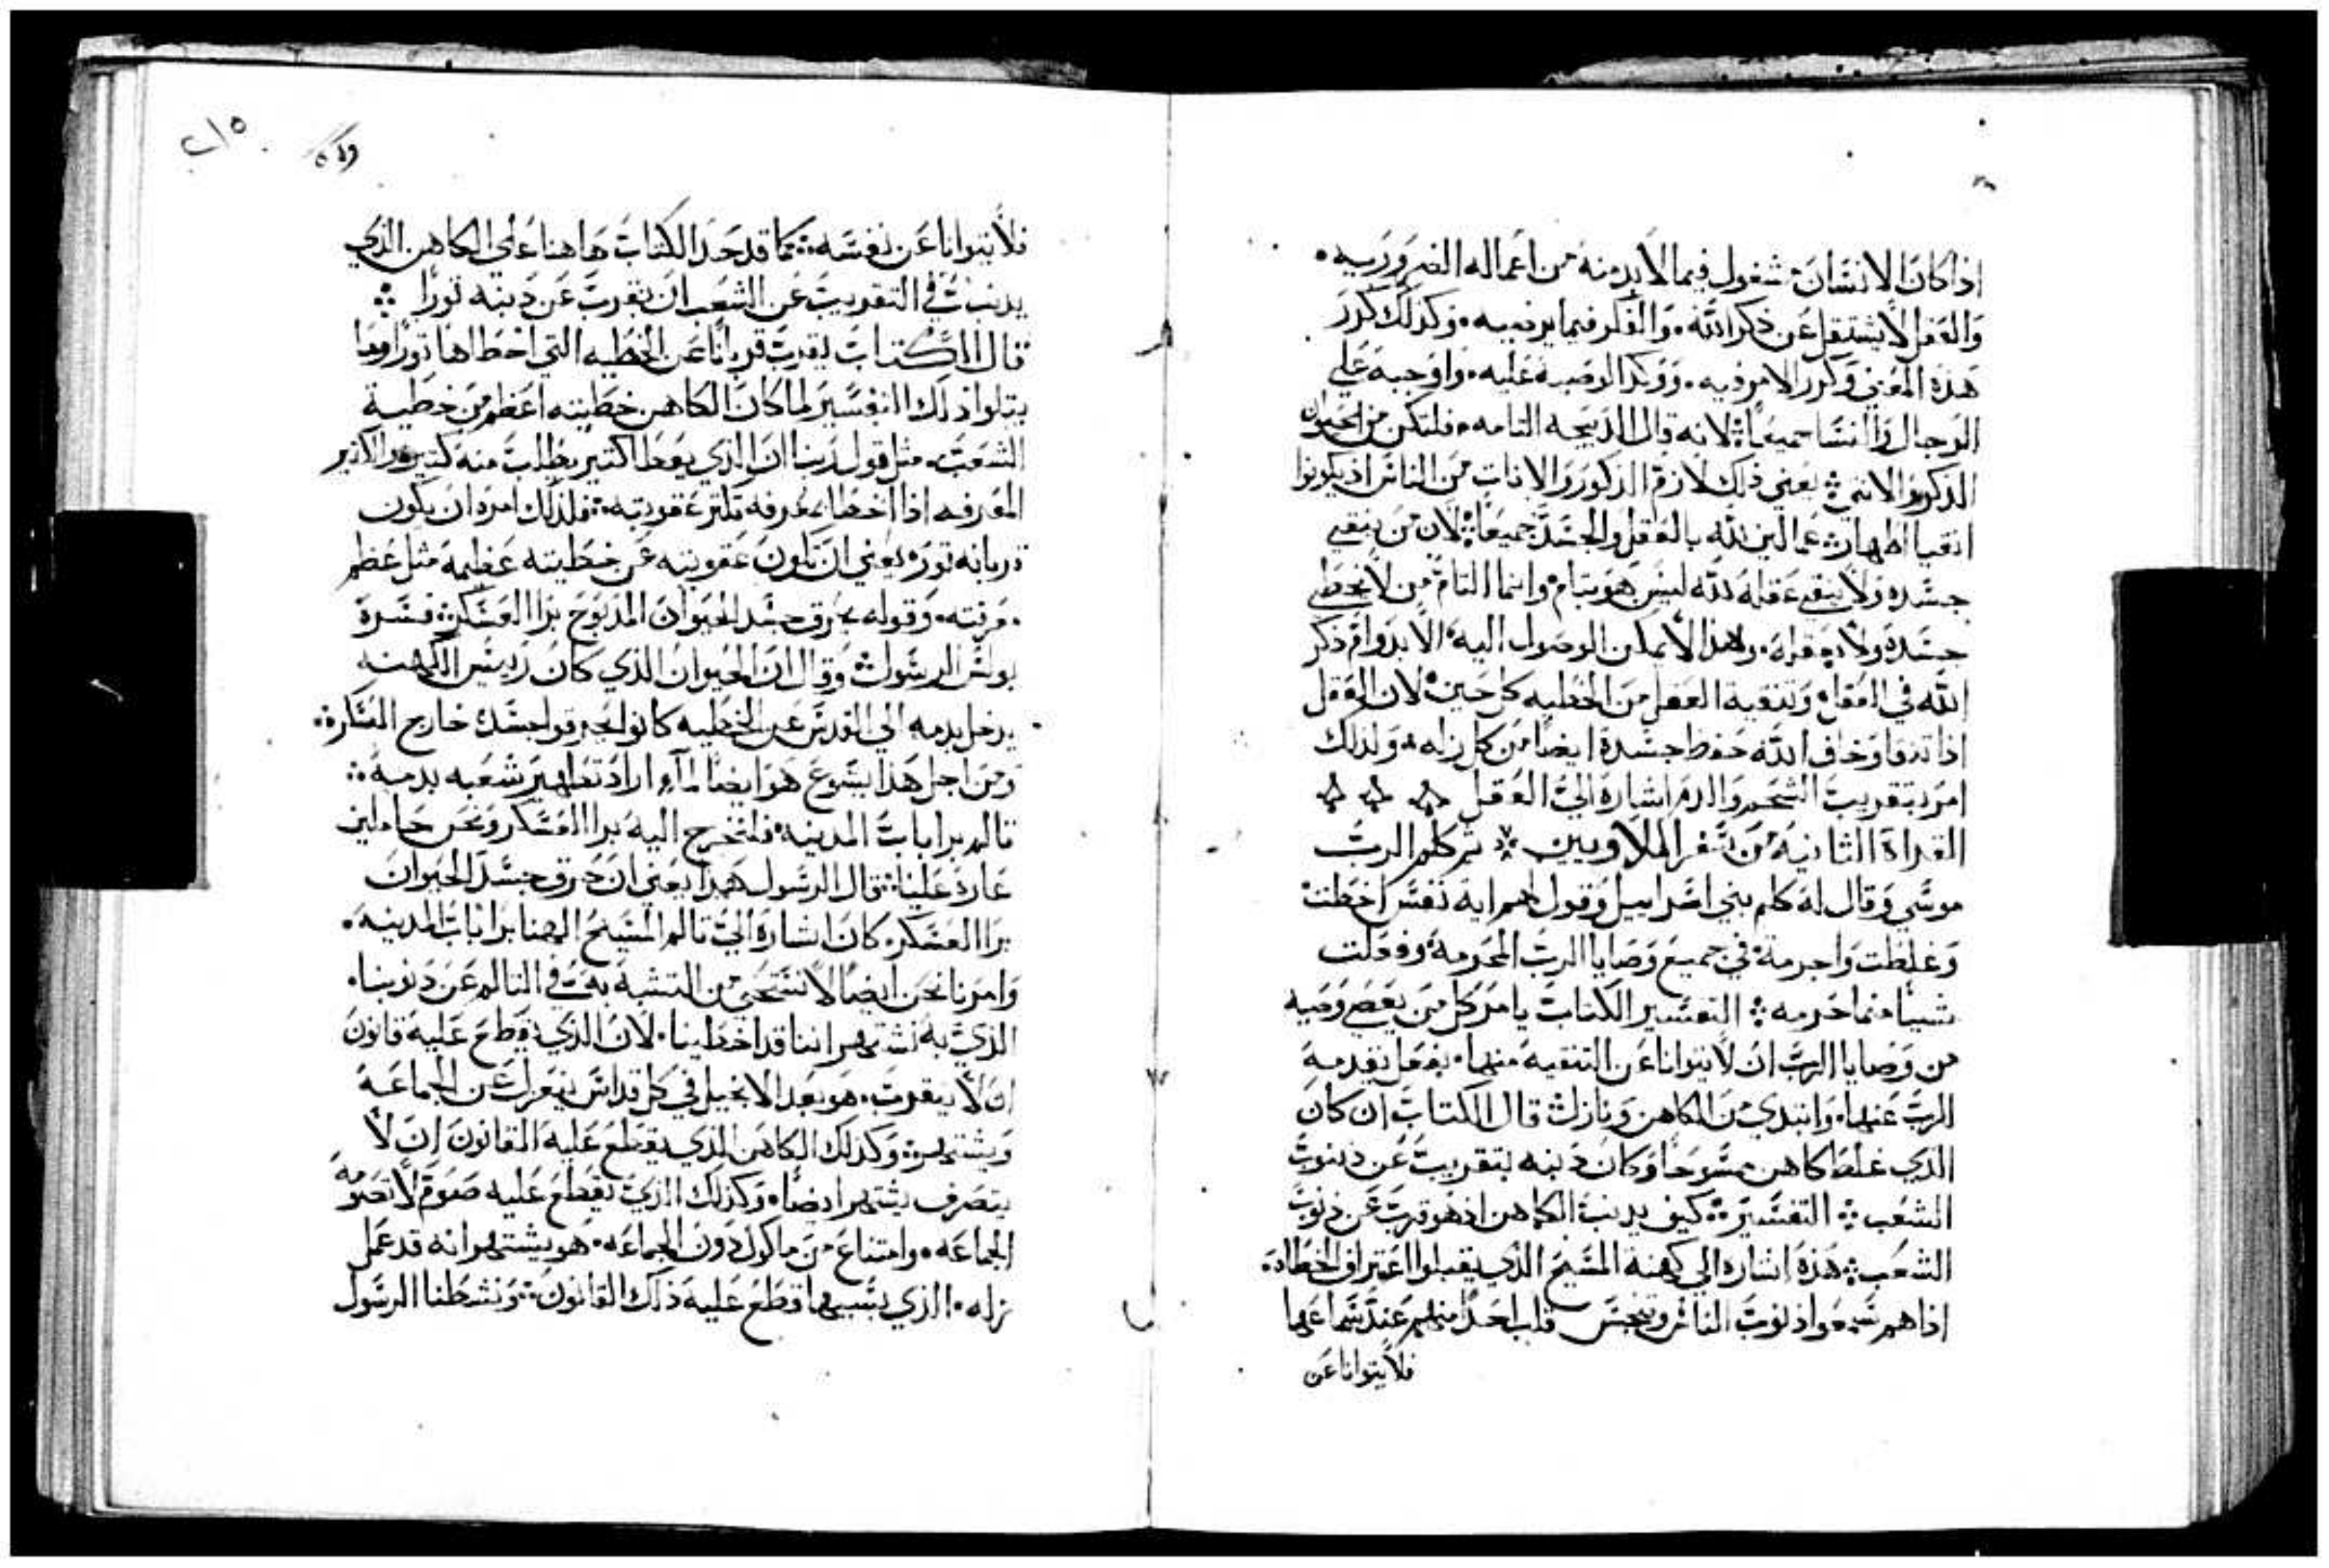 اذا كان الانسان مشغول فيما لابد منه من اعماله الضروريه.
والعقل لا يشتغل عن ذكر الله. والفكر فيما يرضيه. وكذلك كرر
هذه المعني وكرر الامر فيه. ووكد الوصيه عليه. واوجبه علي
الرجال والنسا جميعاً لانه قال الدبيحه التامه. فلتكن من الحيوان
الدكر والانتي يعني ذلك لازم الدكور والانات من الناس اذ يكونوا
انقيا اطهار عمالين لله بالعقل والجسد جميعاً لان من ينقي
جسده ولا ينقي عقله لله ليس هو بتام وانما التام من لا يخطي
جسده ولا بعقله. ولهذا لا يمكن الوصول اليه الا بدوام ذكر
الله في العقل وتنقية العقل من الخطيه كل حين لان العقل
اذا تنقا وخاف الله حفظ جسده ايضاً من كل زله ولذلك
امر بتقريب الشحم والدم اشارة الي العقل
القراة الثانيه من سفر اللاويين ثم كلم الرب
موسي وقال له كلم بني اسراييل وقول لهم اية نفس اخطت
وغلطت واجرمة في جميع وصايا الرب المحرمة وفعلت
شيياً مما حرمه التفسير الكتاب يامر كل من يعصي وصيه
من وصايا الرب ان لا يتوانا عن التنقيه منها. بفعل تقدمة
الرب عنها. وابتدي من الكاهن ونازل قال الكتاب ان كان
الذي غلط كاهن ممسوحاً وكان ذنبه بتقريب عن دنوب
الشعب التفسير كيف يدنب الكاهن اذ هو قرب عن دنوب
الشعب هذه اشاره الي كهنة المسيح الذي يقبلوا اعتراف الخطاه.
اذا هم سمعوا ذنوب الناس وينجس قلب احد منهم عند سماعها
فلا يتوانا عن
٢١٥
فلا يتوانا عن نفسه كما قد حد الكتاب هاهنا علي الكاهن الذي
يدنب في التقريب عن الشعب ان يقرب عن دنبه توراً
قال الكتاب يقرب قرباناً عن الخطيه التي اخطاها توراً وما
يتلوا ذلك التفسير لما كان الكاهن خطيته اعظم من خطية
الشعب. مثل قول ربنا ان الذي يعطا اكتير يطلب منه كتير والاكتير
المعرفه اذا اخطا بمعرفه تكتر عقوبته فلذلك امره ان يكون
قربانه تور يعني ان تكون عقوبته عن خطيته عظيمه مثل عظم
مرتبته. وقوله يحرق جسد الحيوان المدبوح برا العسكر فسره
بولس الرسول وقال ان الحيوان الذي كان رييس الكهنه
يدخل بدمه الي القدس عن الخطيه كانوا يحرقوا جسده خارج العسكر
ومن اجل هذا يسوع هو ايضاً لما اراد تطهير شعبه بدمه
تالم برا باب المدينه فلنخرج اليه برا العسكر ونحن حاملين
عاره علينا قال الرسول هذا يعني ان حرق جسد الحيوان
برا العسكر كان اشارة الي تالم المسيح الهنا برا باب المدينه.
وامرنا نحن ايضاً لا نستحي من التشبه به في التالم عن دنوبنا.
الذي به نشتهر اننا قد اخطينا. لان الذي يقطع عليه قانون
ان لا يتقرب. هو بعد الانجيل في كل قداس ينعزل عن الجماعة
ويشتهر وكذلك الكاهن الذي يقطع عليه القانون ان لا
يتصرف يشتهر ايضاً وكذلك الذي يقطع عليه صوم لا تصومه
الجماعه. وامتناع من ماكول دون الجماعه. هو يشتهر انه قد عمل
زله. الذي بسببها قطع عليه ذلك القانون ونشطنا الرسول